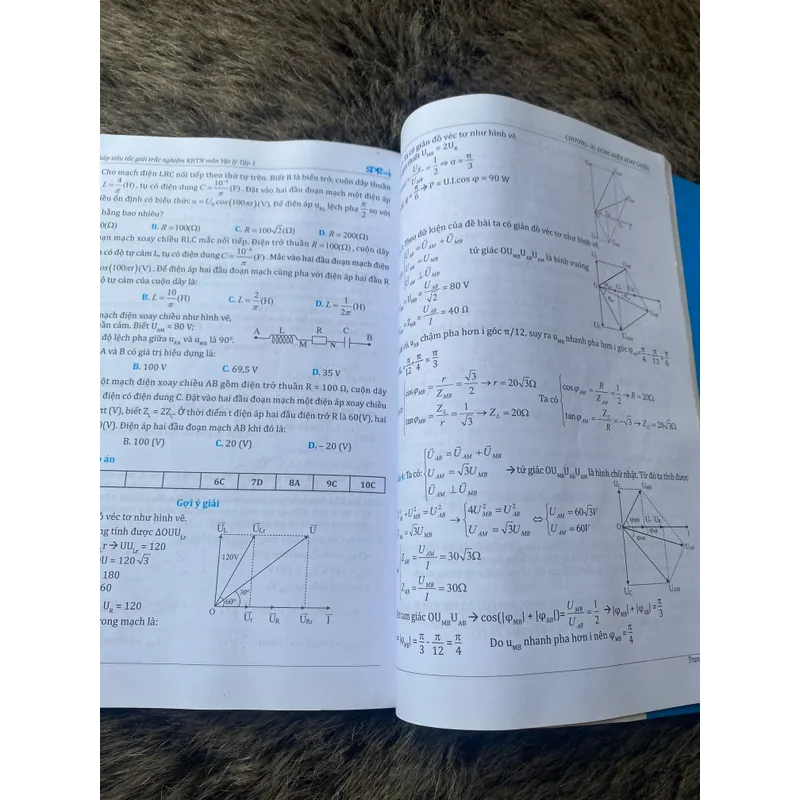 siêu tốc giải trắc nghiệm KHTN môn Vật lý Tập 2
Cho mạch điện LRC nối tiếp theo thứ tự trên. Biết R là biến trở, cuộn dây thuần
L = 4/π (H), tụ có điện dung C = 10⁻⁴/π (F). Đặt vào hai đầu đoạn mạch một điện áp
ổn định có biểu thức u = U₀cos(100πt)(V). Để điện áp u_RL lệch pha π/2 so với
bằng bao nhiêu?
B. R = 100(Ω) C. R = 100√2(Ω) D. R = 200(Ω)
mạch xoay chiều RLC mắc nối tiếp. Điện trở thuần R = 100Ω, cuộn dây
có độ tự cảm L, tụ có điện dung C = 10⁻⁴/π (F). Mắc vào hai đầu đoạn mạch điện
cos(100πt)(V). Để điện áp hai đầu đoạn mạch cùng pha với điện áp hai đầu R
tự cảm của cuộn dây là:
B. L = 10/π (H) C. L = 2/π (H) D. L = 1/2π (H)
mạch điện xoay chiều như hình vẽ,
thuần cảm. Biết U_AM = 80 V;
độ lệch pha giữa u_AN và u_MB là 90°.
A và B có giá trị hiệu dụng là:
A L M R N C B
B. 100 V C. 69,5 V D. 35 V
một mạch điện xoay chiều AB gồm điện trở thuần R = 100 Ω, cuộn dây
điện có điện dung C. Đặt vào hai đầu đoạn mạch một điện áp xoay chiều
πt (V), biết Z_L = 2Z_C. Ở thời điểm t điện áp hai đầu điện trở R là 60(V), hai
(V). Điện áp hai đầu đoạn mạch AB khi đó là:
B. 100 (V) C. 20 (V) D. – 20 (V)
án
6C 7D 8A 9C 10C
Gợi ý giải
véc tơ như hình vẽ.
tính được ΔOUU_Lr
→ UU_Lr = 120
U = 120√3
180
60
U_R = 120
trong mạch là:
U_L U_Lr U
120V
60° 30°
O U_r U_R U_Rr I
CHƯƠNG III. DÒNG ĐIỆN XOAY CHIỀU
ta có giản đồ véc tơ như hình vẽ.
thuyết U_MB = 2U_R
= 1/2 ⇒ α = π/3
π/6 → P = U.I.cos φ = 90 W
Theo dữ kiện của đề bài ta có giản đồ véc tơ như hình vẽ
U_AB = U_AM + U_MB
U_AM = U_MB
U_AM ⊥ U_MB
tứ giác OU_MBU_ABU_AM là hình vuông
= U_AB/√2 = 80 V
= U_AB/I = 40 Ω
có u_AB chậm pha hơn i góc π/12, suy ra u_MB nhanh pha hơn i góc φ_MB = π/4 - π/12 = π/6
π/12 + π/4 = π/3
cosφ_MB = r/Z_MB = √3/2 → r = 20√3Ω
tanφ_MB = Z_L/r = 1/√3 → Z_L = 20Ω
Ta có
cosφ_AM = R/Z_AM = 1/2 → R = 20Ω
tanφ_AM = -Z_C/R = -√3 → Z_C = 20√3Ω
Ta có:
U_AB = U_AM + U_MB
U_AM = √3U_MB
U_AM ⊥ U_MB
→ tứ giác OU_MBU_ABU_AM là hình chữ nhật. Từ đó ta tính được
+ U²_MB = U²_AB
= √3U_MB
→ 4U²_MB = U²_AB
U_AM = √3U_MB
⇔ U_AM = 60√3V
U_AM = 60V
= U_AM/I = 30√3Ω
= U_MB/I = 30Ω
tam giác OU_MBU_AB → cos(|φ_MB| + |φ_AB|) = U_MB/U_AB = 1/2 → |φ_MB| + |φ_AB| = π/3
= |φ_MB| = π/3 - π/12 = π/4 Do u_MB nhanh pha hơn i nên φ_MB = π/4